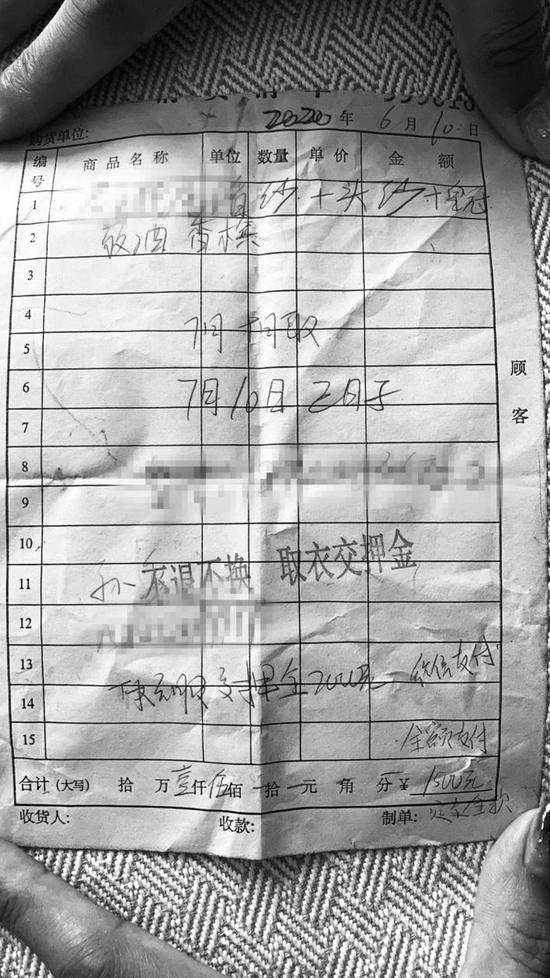 购货单位: 2020 年 6 月 10 日
编号 商品名称 单位 数量 单价 金额
1 纱 + 头纱 +
2 敬酒 香槟
3
4
7月 取
5
6 7月10日 正日子
7
8
9
10
不退不换 取衣交押金
11 孙
12
13 微信支付
交押金2000元
14
15 全额支付
合计(大写) 拾 万 壹 仟 伍 佰 拾 元 角 分 ¥ 1500元
收货人: 收款: 制单:
顾客